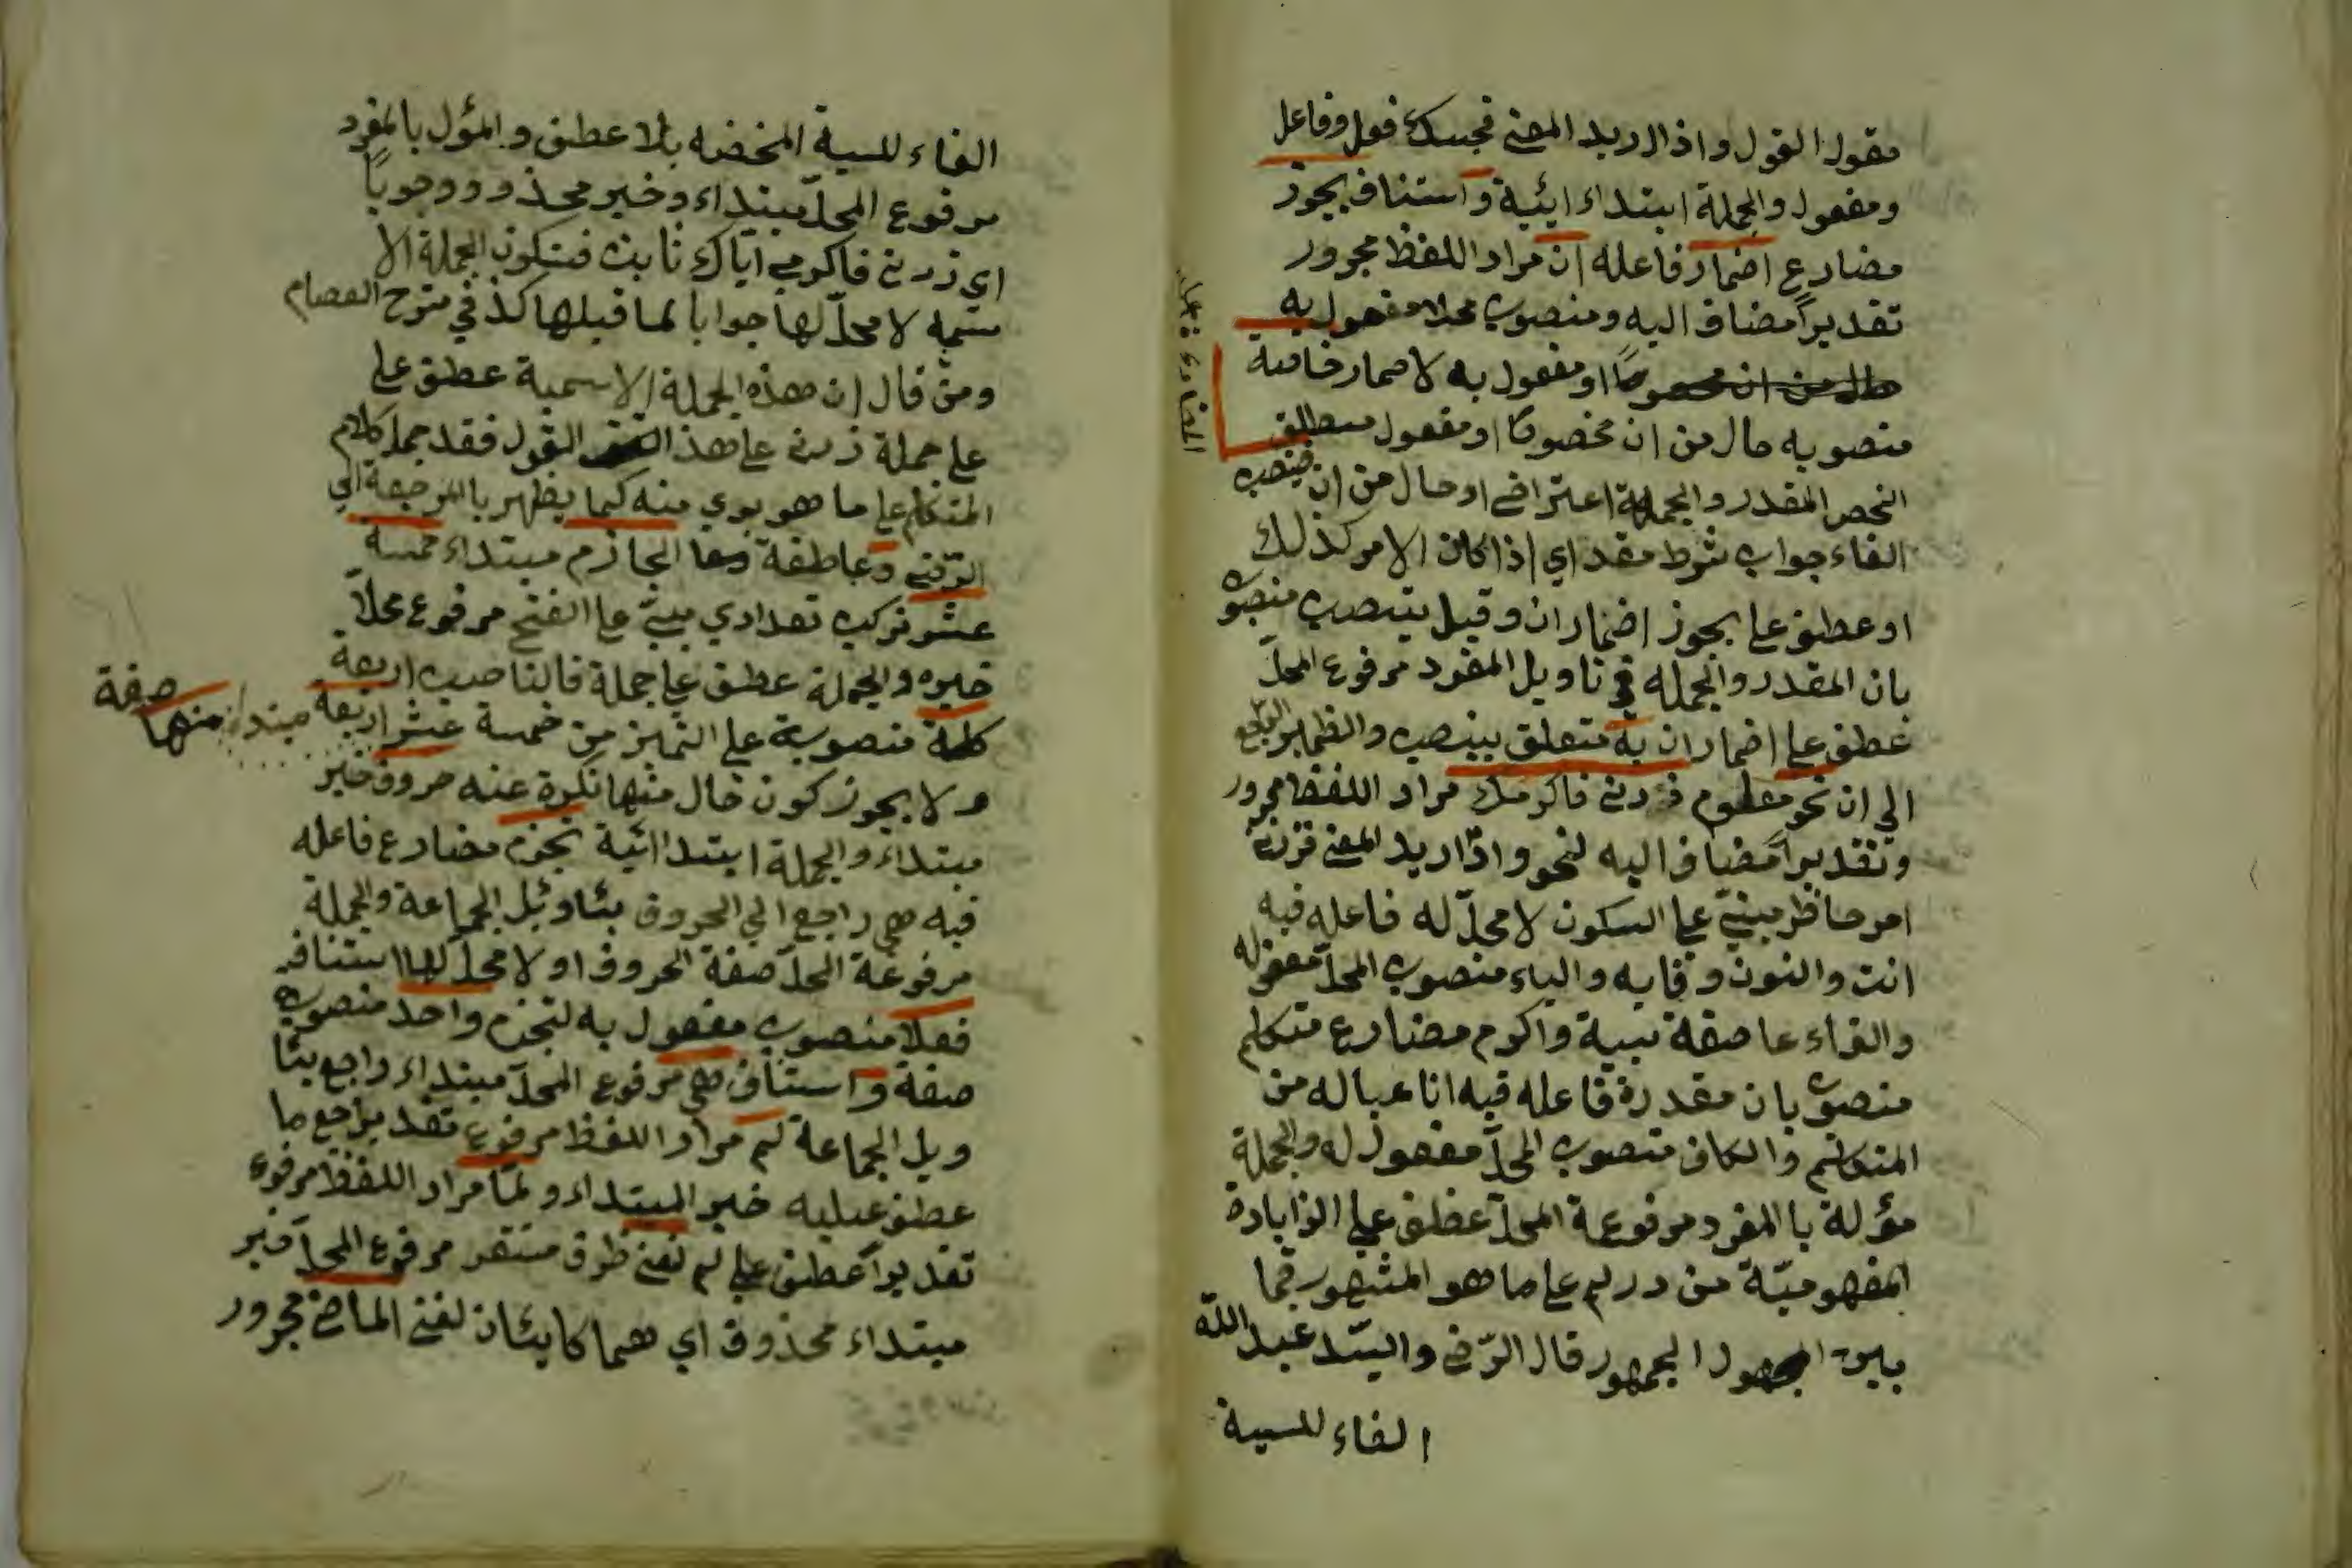 مقول القول واذا اريد المعنى فحبسك فعل وفاعل
ومفعول والجملة ابتداء ائية و استناف يجوز
مضارع اضمار فاعله ان مراد اللفظ مجرور
تقديراً مضاف اليه ومنصوب محلا مفعول به
او مفعول به لاضمار خاصة
منصوبه حال من ان مخصوصا او مفعول مطلق
النحص المقدر والجملة اعتراض او حال من ان فينصب
الفاء جواب شرط مقدر اي اذا كان الامر كذلك
او عطف على يجوز اضمار ان وقيل ينصب منصوب
بان المقدر والجملة في تاويل المفرد مرفوع المحلّ
عطف على اضمار ان به متعلق بينصب والضمير الراجع
الي ان نحو زرني فاكرمك مراد اللفظ مجرور
وتقديراً مضاف اليه لنحو واذا اريد المعنى فزرني
امر حاضر مبنيّ على السكون لا محلّ له فاعله فيه
انت والنون وقايه والياء منصوب المحلّ مفعوله
والفاء عاصفة سببية واكرم مضارع متكلم
منصوب بان مقدرة فاعله فيه انا عباله من
المتكلم والكاف منصوب المحلّ مفعول له والجملة
مؤلة بالمفرد مرفوعة المحلّ عطف على الزايادة
المفهوميّة من على ما هو المشهور فيما
بين الجمهور قال الرّضى والسيّد عبد الله
الفاء للسبية
الفاء للسبية المخضه بلا عطف والمؤل بالمفرد
مرفوع المحلّ مبتداء وخبر محذوو وجوباً
اي زرني فاكرمي اياك ثابث فتكون الجملة الا
سميه لا محلّ لها جوابا لما قبلها كذ في شرح العصام
ومن قال ان هذه الجملة الاسمية عطف على
على جملة زرني على هذ القول فقد حمل كلام
المتكلم على ما هو بري منه كما يظهر بالمرجعة الي
الرّضى وعاطفة الجازم مبتداء خمسة
عشر تركيب تعدادي مبنيّ على الفتح مرفوع محلاً
خبره والجملة عطف على جملة فالناصب اربعة
كلمة منصوبة على التميز من خمسة عشر اربعة مبتداء منها صفة
و لا يجوز كون حال منها نكرة عنه حروف خبر
مبتداء والجملة ابتدائية تجزم مضارع فاعله
فيه هي راجع الي الحروف بتاويل الجماعة والجملة
مرفوعة المحلّ صفة الحروف او لا محلّ لها استناف
فعلا منصوب مفعول به لتجزم واحد منصوب
صفة و استناف هي مرفوع المحلّ مبتداء راجع بتا
ويل الجماعة لم مراد اللفظ مرفوع تقدير مع ما
عطف عليه خبر المبتداء و لمّا مراد اللفظ مرفوع
تقديراً عطف على لم لنفي ظرف مستقر مرفوع المحلّ خبر
مبتداء محذوف اي هما كاينان لنفي الماضي مجرور